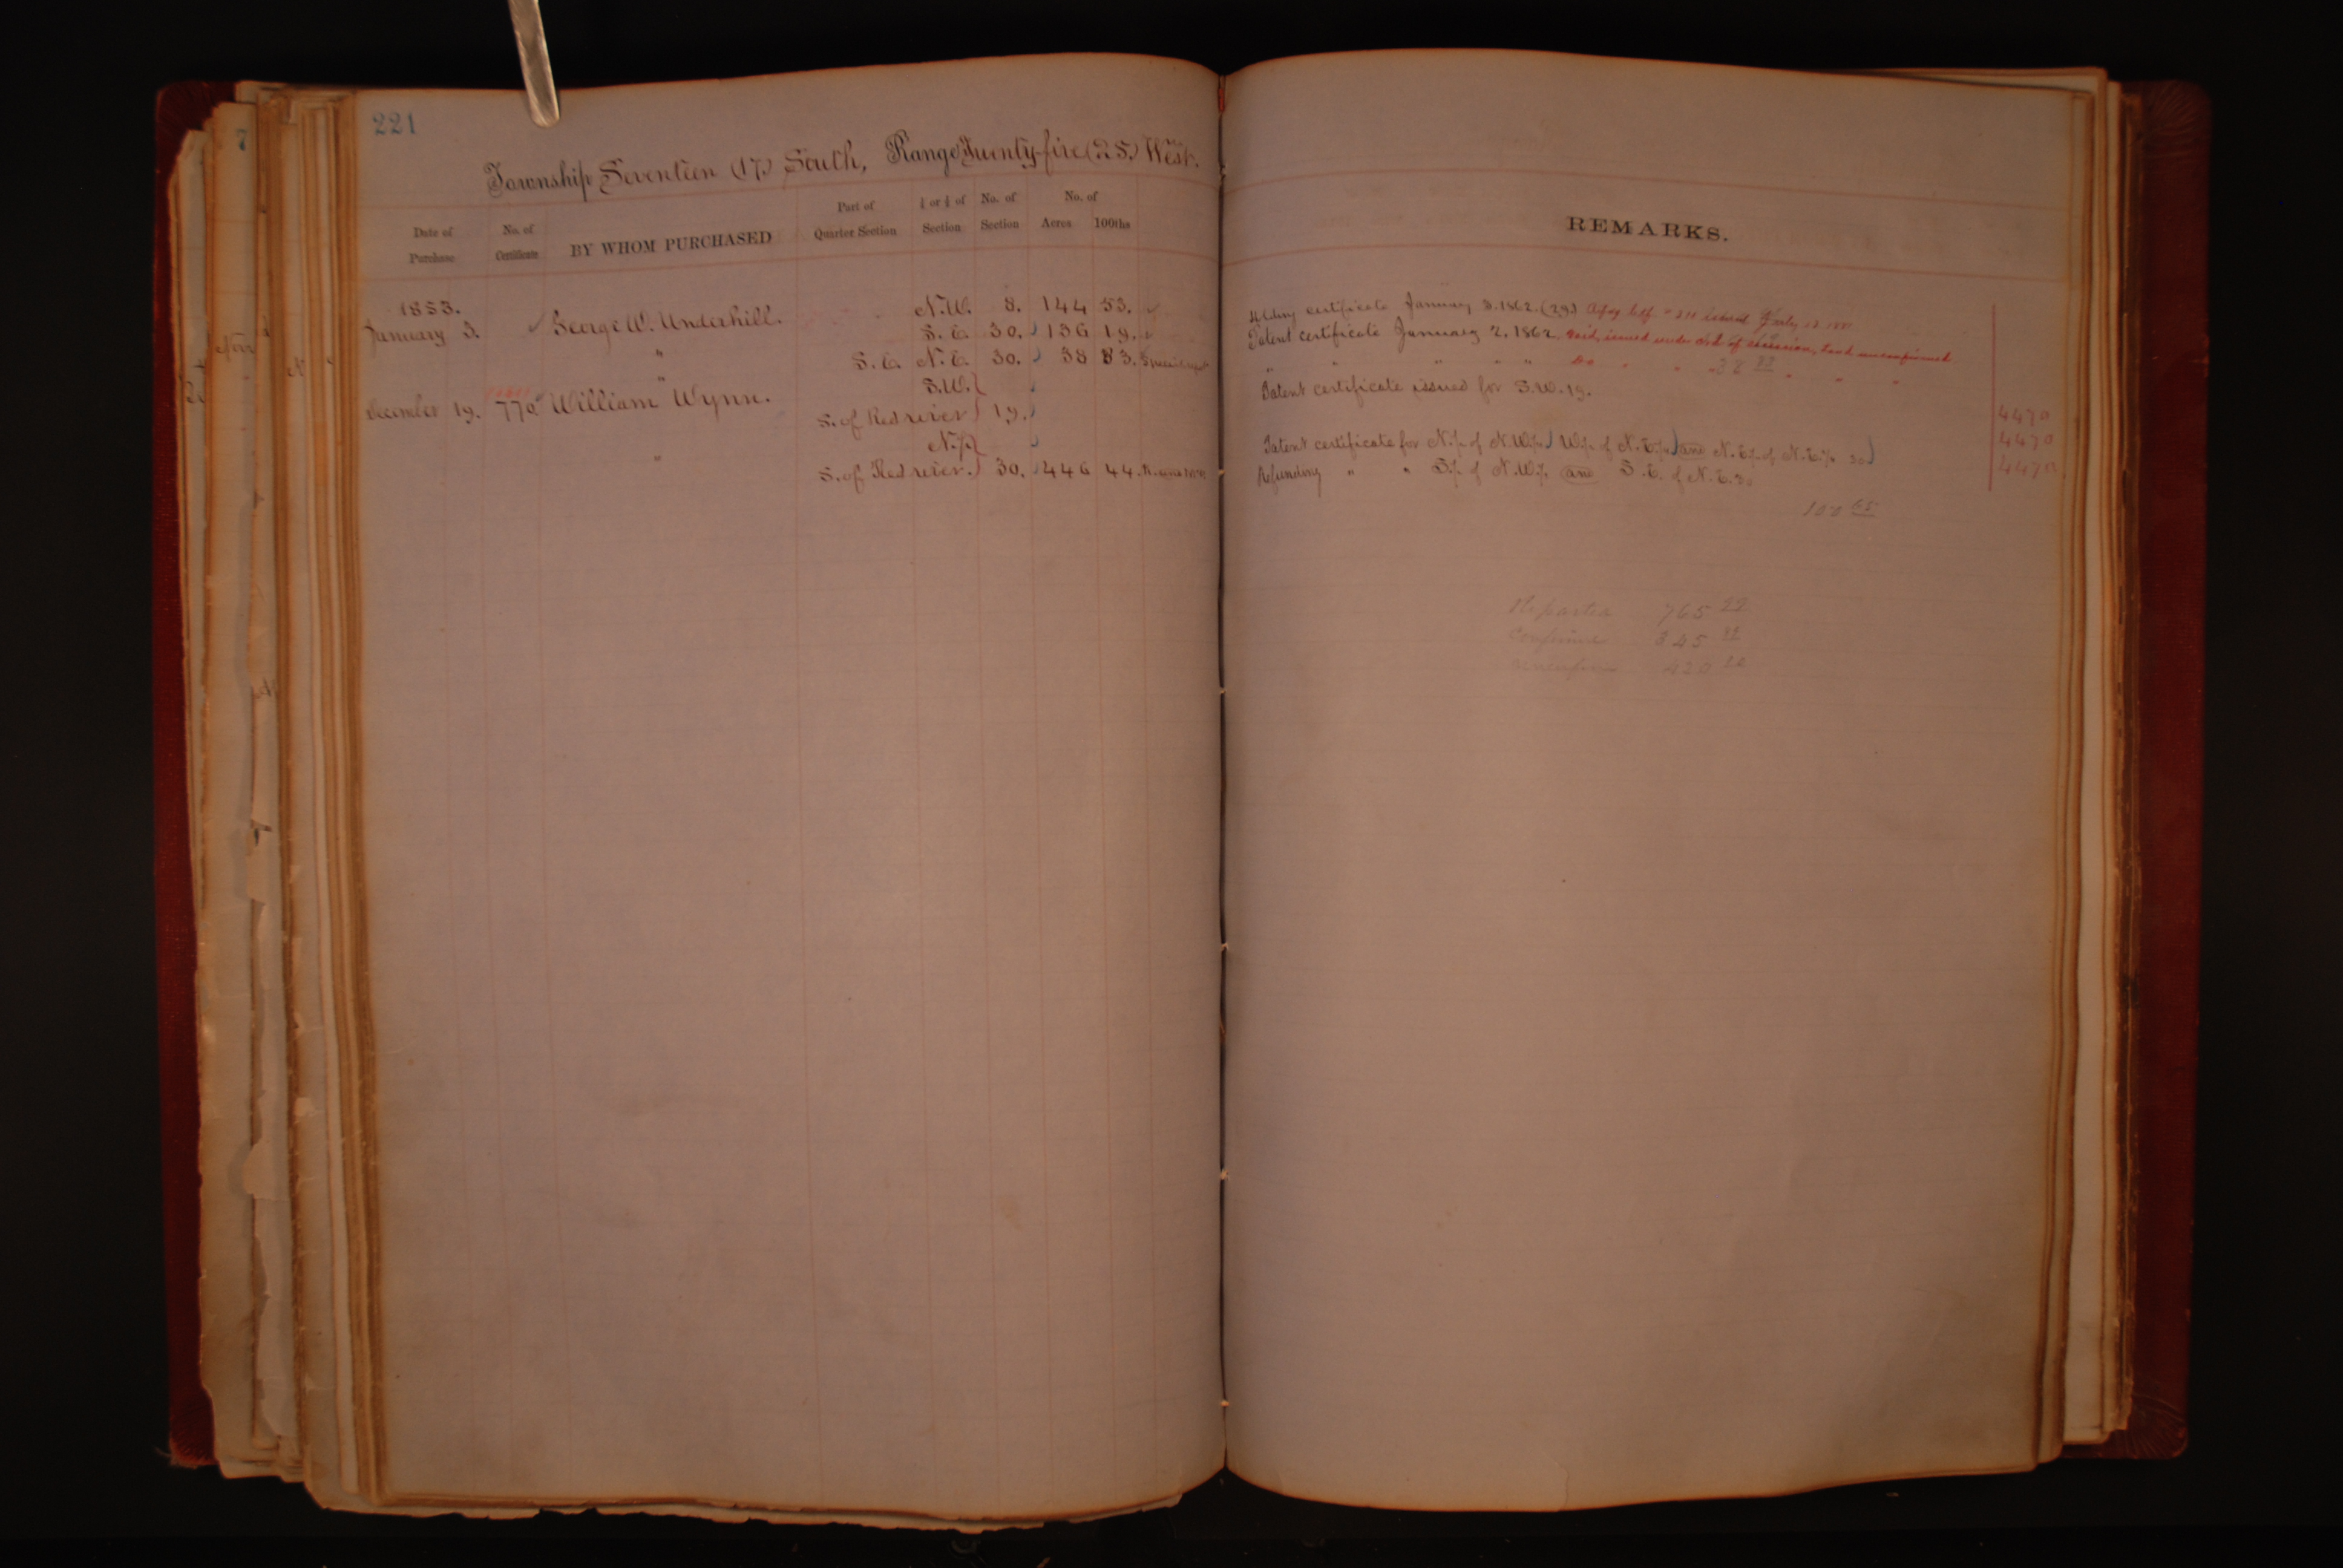 221
Township Seventeen (17) South, Range Twenty-five (25) West.
Date of Purchase
No. of Certificate
BY WHOM PURCHASED
Part of Quarter Section
Section
No. of Section
No. of
Acres 100ths
REMARKS.
1853.
January 3. George W. Underhill. N.W. 8. 144 53.
" S. E. 30. 136 19.
" S. E. N. E. 30. 38 83.
December 19. 770 William Wynn. S.W.
S. of Red river 19.
N.½
" S. of Red river. 30. 446 44.
certificate January 3. 1862. (29)
Patent certificate January 2. 1862. Void, issued under Ord. of secession, Land unconfirmed
" " " " " Do " " "
Patent certificate issued for S.W. 19.
Patent certificate for N.½ of N.W.¼ W.½ of N.E.¼ and N.E.¼ of N.E.¼ 30
Refunding " " S.½ of N.W.¼ and S.E. of N.E. 30
4470
4470
4470
765
345